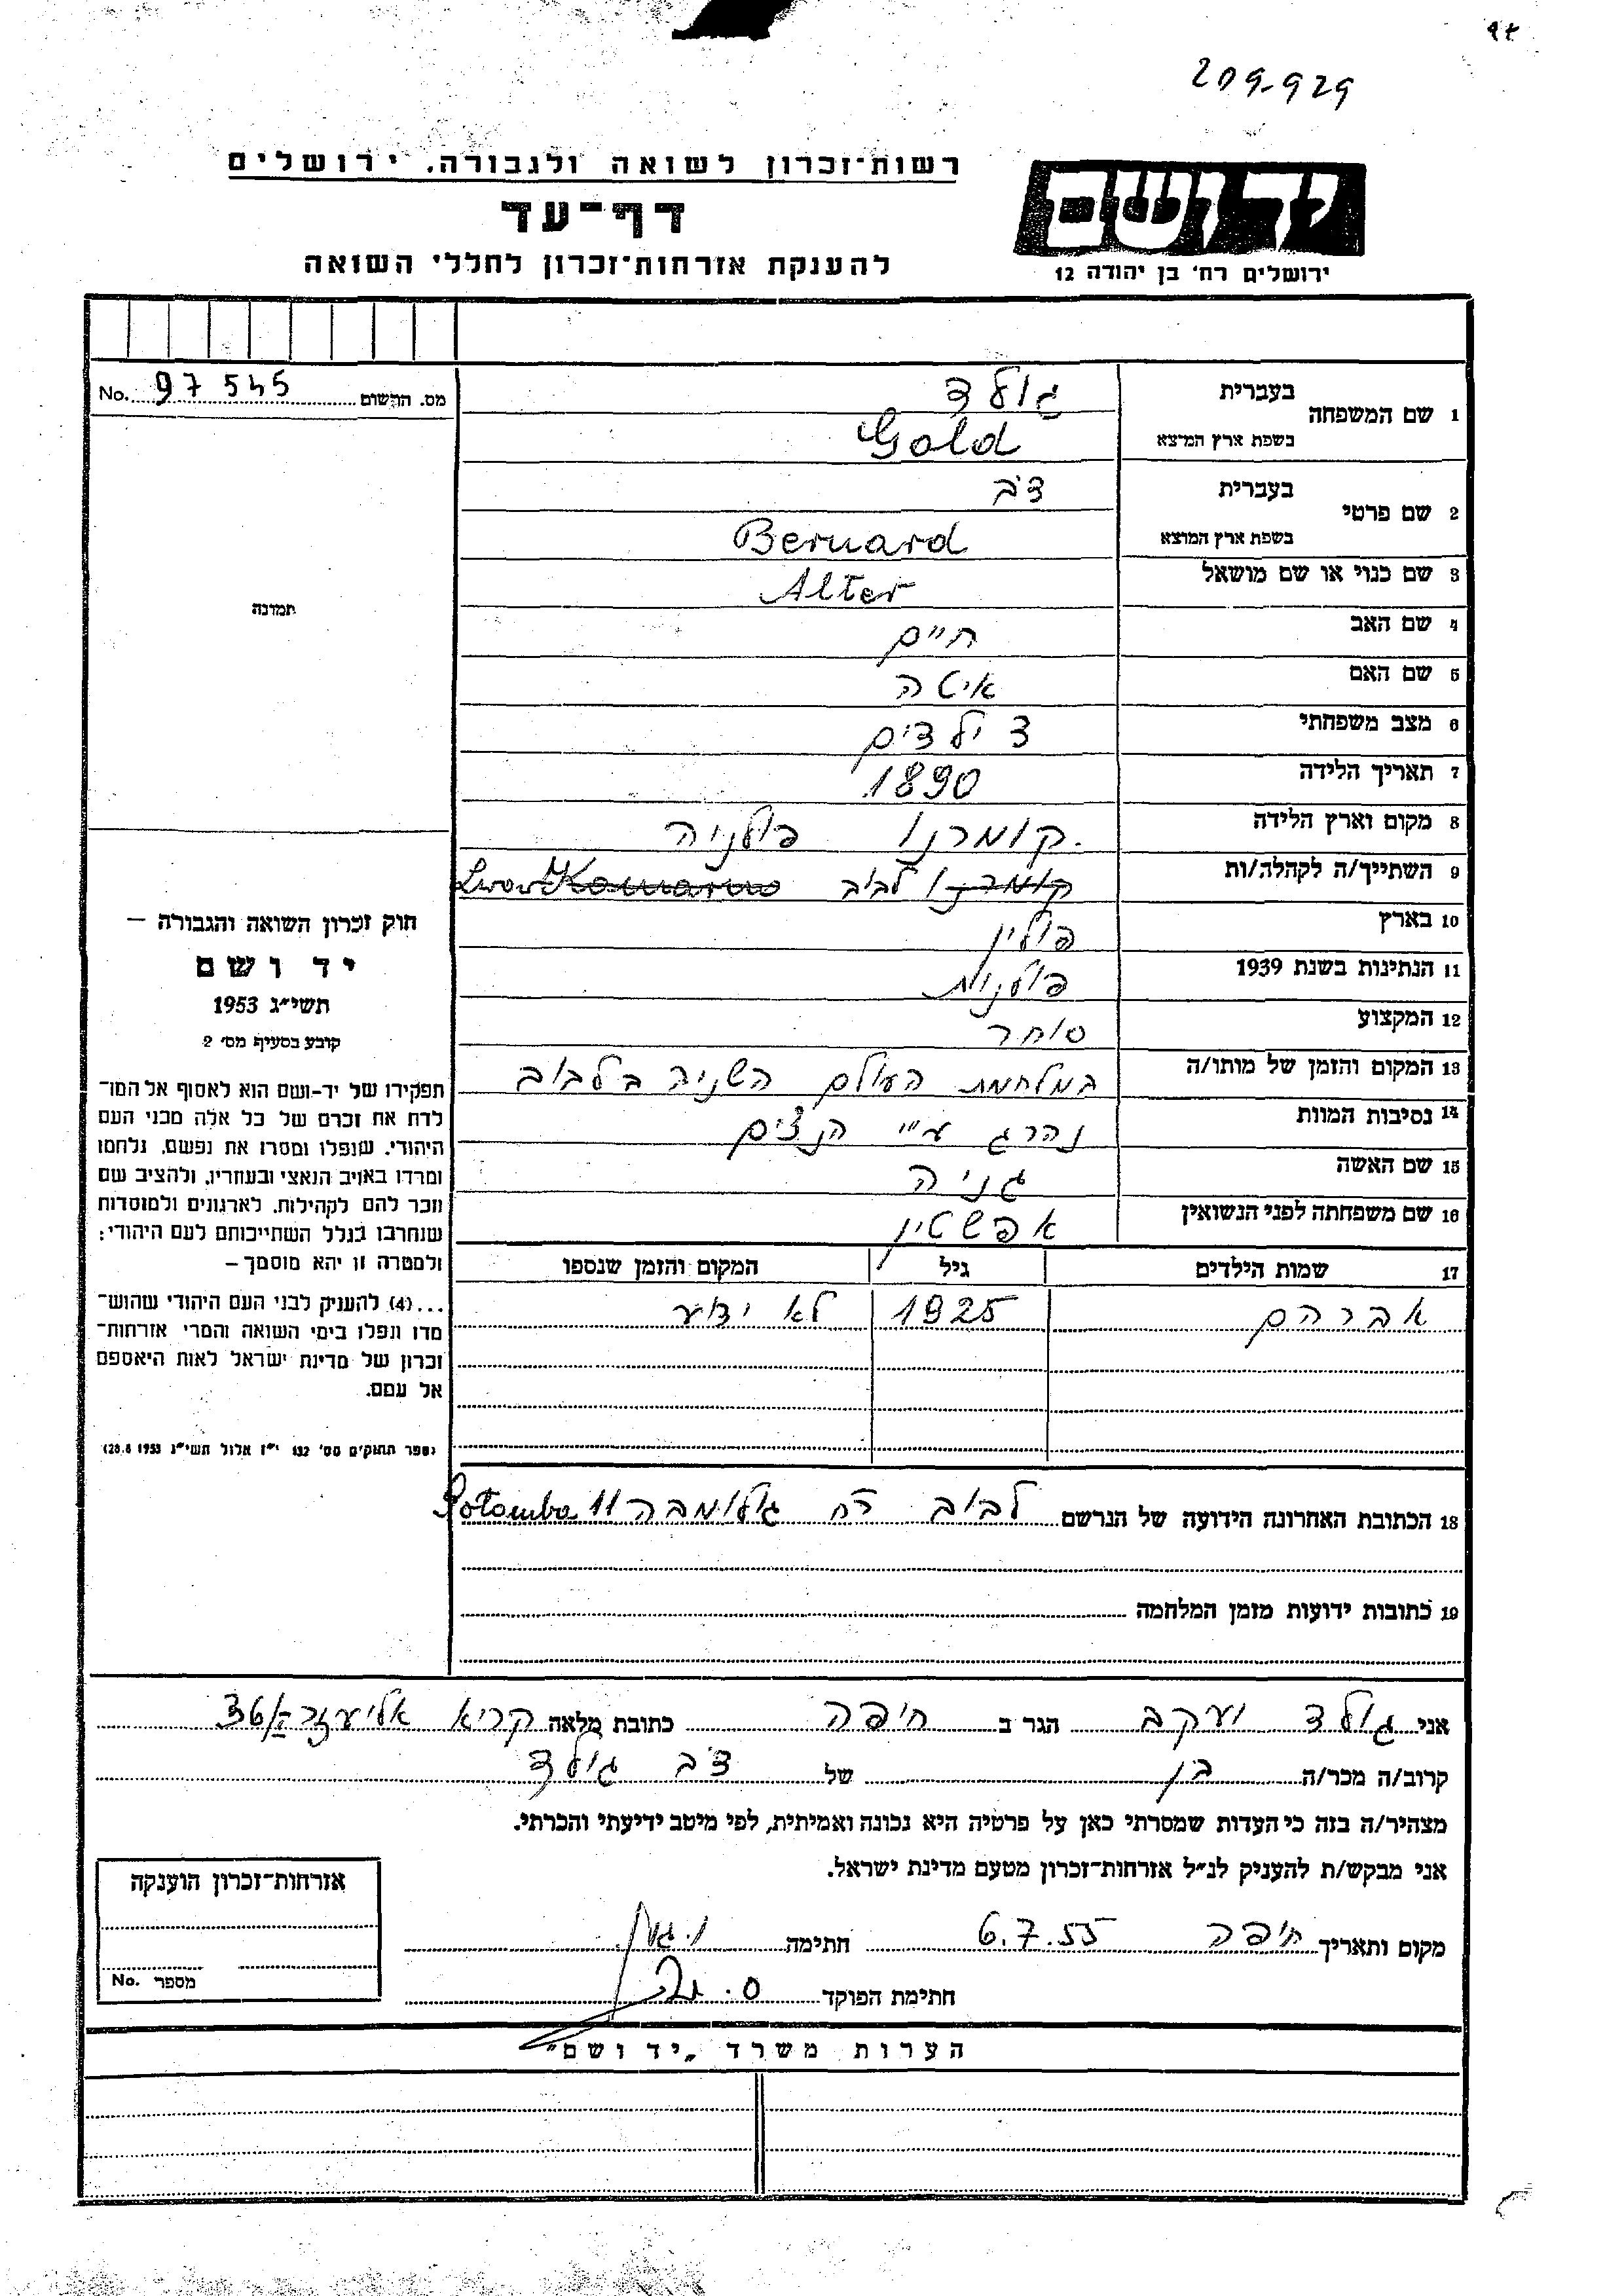 209-929
רשות־זכרון לשואה ולגבורה. ירושלים
דף־עד
להענקת אזרחות־זכרון לחללי השואה
יד ושם
ירושלים רח' בן יהודה 12
מס. הרשום No. 97545
1 שם המשפחה בעברית גולד
בשפת ארץ המוצא Gold
2 שם פרטי בעברית דב
בשפת ארץ המוצא Bernard
3 שם כנוי או שם מושאל Alter
4 שם האב חיים
5 שם האם איטה
6 מצב משפחתי 3 ילדים
7 תאריך הלידה 1890
8 מקום וארץ הלידה קומרנו פולניה
9 השתייך/ה לקהלה/ות קומרנו לבוב Komarno Lwow
10 בארץ פולין
11 הנתינות בשנת 1939 פולנית
12 המקצוע סוחר
13 המקום והזמן של מותו/ה במלחמת העולם השניה בלבוב
14 נסיבות המוות נהרג ע"י הנצים
15 שם האשה גניה
16 שם משפחתה לפני הנשואין אפשטין
17 שמות הילדים גיל המקום והזמן שנספו
אברהם 1925 לא ידוע
18 הכתובת האחרונה הידועה של הנרשם לבוב רח 11
19 כתובות ידועות מזמן המלחמה
תמונה
חוק זכרון השואה והגבורה —
יד ושם
תשי"ג 1953
קובע בסעיף מס' 2
תפקידו של יד-ושם הוא לאסוף אל המו־
לדת את זכרם של כל אלה מבני העם
היהודי. שנפלו ומסרו את נפשם. נלחמו
ומרדו באויב הנאצי ובעוזריו, ולהציב שם
וזכר להם לקהילות, לארגונים ולמוסדות
שנחרבו בגלל השתייכותם לעם היהודי:
ולמטרה זו יהא מוסמך —
...(4) להעניק לבני העם היהודי שהוש־
מדו ונפלו בימי השואה והמרי אזרחות־
זכרון של מדינת ישראל לאות היאספם
אל עמם.
(ספר החוקים מס' 132 י"ז אלול תשי"ג 28.8.1953)
אני גולד יעקב הגר ב חיפה כתובת מלאה קרית אליעזר
קרוב/ה מכר/ה בן של דב גולד
מצהיר/ה בזה כי העדות שמסרתי כאן על פרטיה היא נכונה ואמיתית, לפי מיטב ידיעתי והכרתי.
אני מבקש/ת להעניק לנ"ל אזרחות־זכרון מטעם מדינת ישראל.
מקום ותאריך חיפה 6.7.55 חתימה
חתימת הפוקד
אזרחות־זכרון הוענקה
מספר No.
הערות משרד „יד ושם"